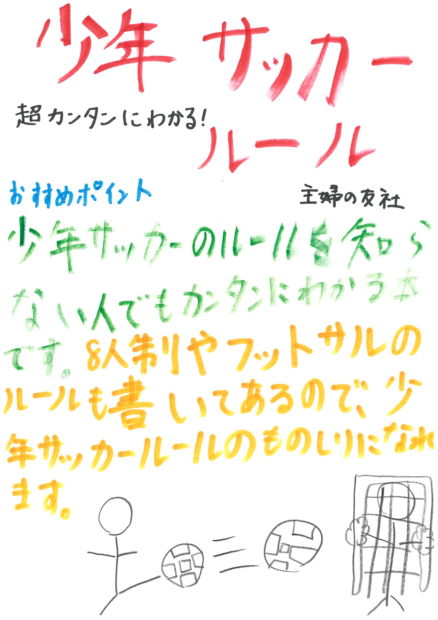 少年サッカー
超カンタンにわかる!
ルール
おすすめポイント
主婦の友社
少年サッカーのルールを知ら
ない人でもカンタンにわかる本
です。8人制やフットサルの
ルールも書いてあるので、少
年サッカールールのものしりになれ
ます。